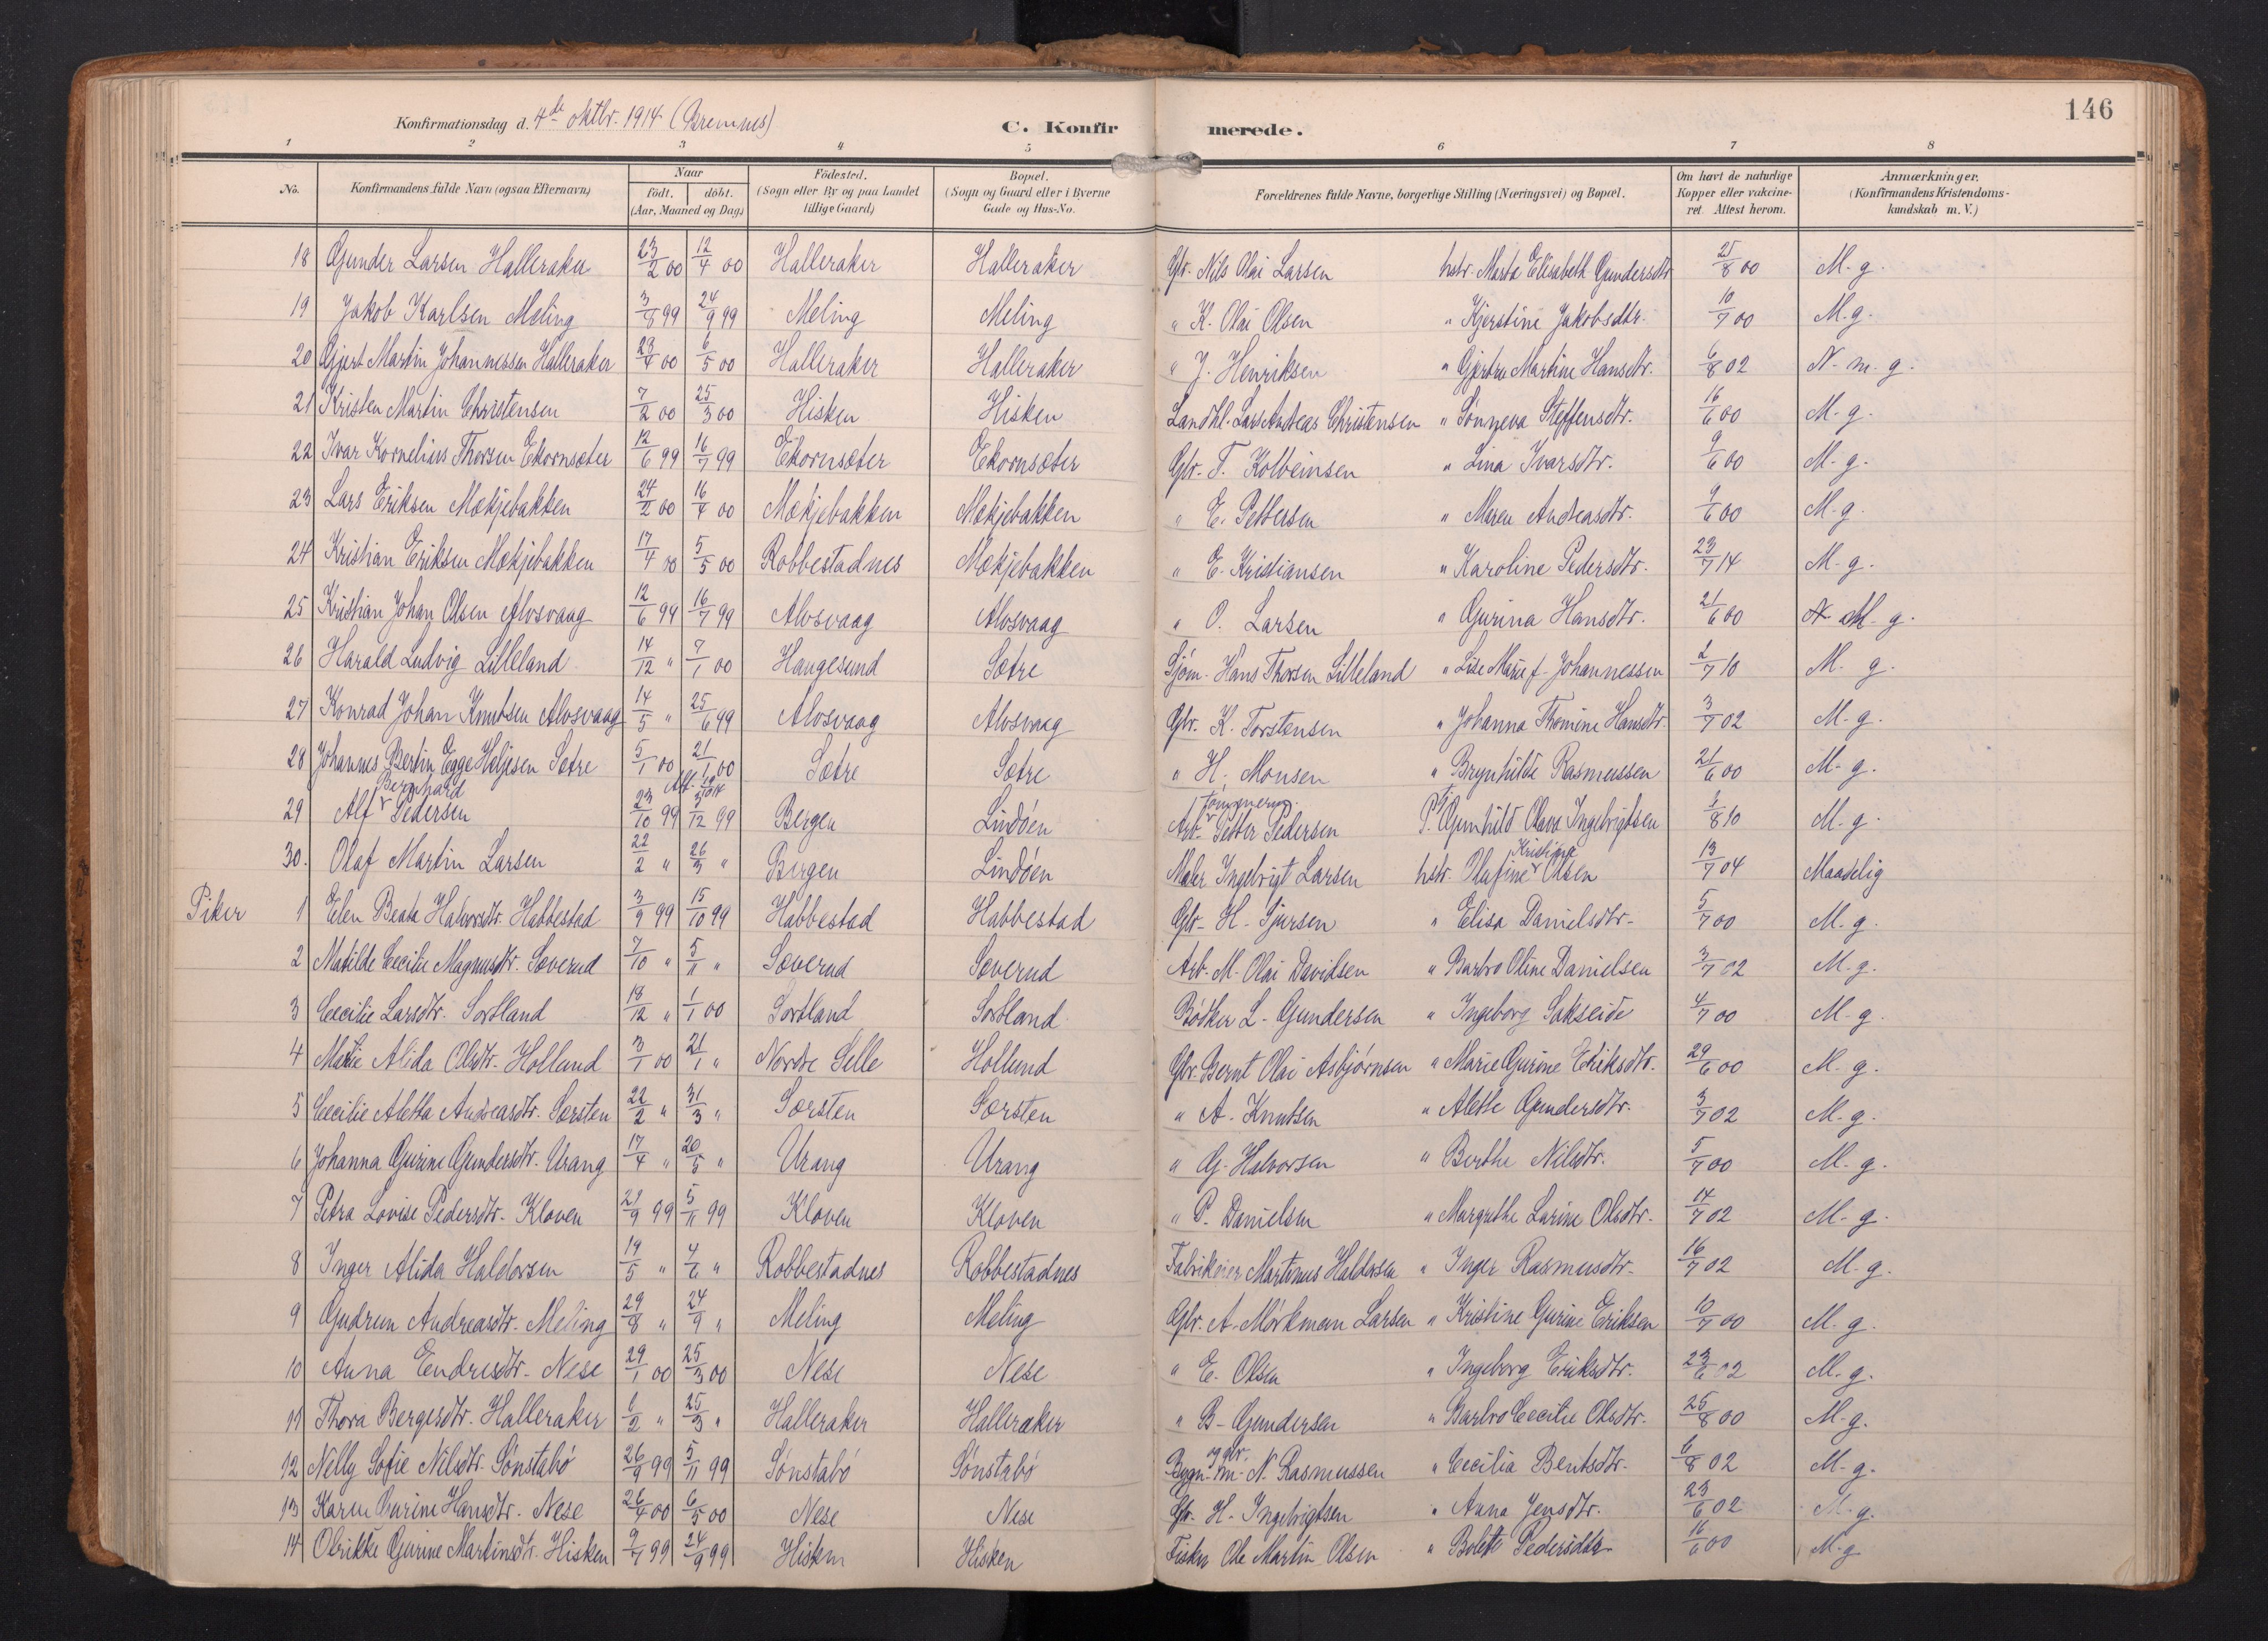 146
Konfirmationsdag d. 4de oktbr. 1914 (Bremnes) C. Konfirmerede.
1 2 3 4 5 6 7 8
No. Konfirmandens fulde Navn (ogsaa Efternavn) Naar født. døbt. (Aar, Maaned og Dag) Fødested. (Sogn eller By og paa Landet tillige Gaard) Bopæl. (Sogn og Gaard eller i Byerne Gade og Hus-No. Forældrenes fulde Navne, borgerlige Stilling (Næringsvei) og Bopæl. Om havt de naturlige Kopper eller vakcineret. Attest herom. Anmærkninger. (Konfirmandens Kristendomskundskab m. V.)
18 Gunder Larsen Halleraker 23/2 00 12/4 00 Halleraker Halleraker Gbr. Nils Olai Larsen hstr. Marta Elisabeth Gundersdtr 25/8 00 M. g.
19 Jakob Karlsen Meling 3/8 99 24/9 99 Meling Meling " K. Olai Olsen " Kjerstine Jakobsdtr. 10/7 00 M. g.
20 Gjert Martin Johannessen Halleraker 23/4 00 6/5 00 Halleraker Halleraker " J. Henriksen " Gjertru Martine Hansdtr. 6/8 02 N. m. g.
21 Kristen Martin Christensen 7/2 00 25/3 00 Hisken Hisken Landhl. Lars Andreas Christensen " Sønneva Steffensdtr. 16/6 00 M. g.
22 Ivar Kornelius Thorsen Ekornsæter 12/6 99 16/7 99 Ekornsæter Ekornsæter Gbr. T. Kolbeinsen " Lina Ivarsdtr. 9/6 00 M. g.
23 Lars Eriksen Mækjebakken 24/2 00 16/4 00 Mækjebakken Mækjebakken " E. Pettersen " Maren Andreasdtr. 9/6 00 M. g.
24 Kristian Eriksen Mækjebakken 17/4 00 5/5 00 Robbestadnes Mækjebakken " E. Kristiansen " Karoline Pedersdtr. 23/7 14 M. g.
25 Kristian Johan Olsen Alvsvaag 12/6 99 16/7 99 Alvsvaag Alvsvaag " O. Larsen " Gurina Hansdtr. 21/6 00 M. g.
26 Harald Ludvig Lilleland 14/12 " 7/1 00 Haugesund Sætre Sjøm. Hans Thorsen Lilleland " Lise Marie f. Johannessen 2/7 10 M. g.
27 Konrad Johan Knutsen Alvsvaag 14/5 " 25/6 99 Alvsvaag Alvsvaag Gbr. K. Torstensen " Johanna Thomine Hansdtr. 3/7 02 M. g.
28 Johannes Bertin Egge Heljesen Sætre 5/1 00 21/1 00 Sætre Sætre " H. Monsen " Brynhilde Rasmussen 21/6 00 M. g.
29 Alf Bernhard Pedersen 23/10 99 3/12 99 Bergen Lindøen Arb. Petter Pedersen P.T. Gunhild Olava Ingebrigtsen 3/8 10 M. g.
30. Olaf Martin Larsen 22/2 " 26/3 " Bergen Lindøen Maler Ingebrigt Larsen hstr. Olufine Kristine Olsen 13/7 04 Maadelig
Piker 1 Elen Beata Halvorsdtr. Habbestad 3/9 99 15/10 99 Habbestad Habbestad Gbr. H. Sjursen " Elisa Danielsdtr. 5/7 00 M. g.
2 Matilde Cecilie Magnusdtr. Sæverud 7/10 " 5/11 " Sæverud Sæverud Arb. M. Olai Davidsen " Barbro Oline Danielsen 3/7 02 M. g.
3 Cecilie Larsdtr. Sortland 18/12 " 1/1 00 Sortland Sortland Bødker L. Gundersen " Ingeborg Sakseide 4/7 00 M. g.
4 Marie Alida Olsdtr. Hollund 3/1 00 21/1 " Nordre Selle Hollund Gbr. Bernt Olai Asbjørnsen " Marie Gurine Eriksdtr. 29/6 00 M. g.
5 Cecilie Aletta Andreasdtr. Sørsten 22/2 " 31/3 " Sørsten Sørsten " A. Knutsen " Alette Gundersdtr. 3/7 02 M. g.
6 Johanna Gurine Gundersdtr. Urang 17/4 " 20/5 " Urang Urang " G. Halvorsen " Berthe Nilsdtr. 5/7 00 M. g.
7 Petra Lovise Pedersdtr. Kloven 29/9 99 5/11 99 Kloven Kloven " P. Danielsen " Margrethe Larine Olsdtr. 14/7 02 M. g.
8 Inger Alida Haldorsen 19/5 " 4/6 " Robbestadnes Robbestadnes Fabrikeier Martinus Haldorsen " Inger Rasmusdtr. 16/7 02 M. g.
9 Gudrun Andreasdtr. Meling 29/8 " 24/9 " Meling Meling Gbr. A. Mørkman Larsen " Kristine Gurine Eriksen 10/7 00 M. g.
10 Anna Endresdtr. Nese 29/1 00 25/3 00 Nese Nese " E. Olsen " Ingeborg Eriksdtr. 23/6 02 M. g.
11 Thora Bergesdtr. Halleraker 6/2 " 25/3 " Halleraker Halleraker " B. Gundersen " Barbro Cecilie Olsdtr. 25/8 00 M. g.
12 Nelly Sofie Nilsdtr. Sønstabø 26/9 99 5/11 99 Sønstabø Sønstabø Bygn.m. og gbr. N. Rasmussen " Cecilia Bentsdtr. 6/8 02 M. g.
13 Karen Gurine Hansdtr. Nese 26/4 00 6/5 00 Nese Nese Gbr. H. Ingebrigtsen " Anna Jensdtr. 23/6 02 M. g.
14 Olrikke Gurine Martinsdtr. Hisken 9/7 99 24/9 99 Hisken Hisken Fisker Ole Martin Olsen " Bolette Pedersdtr. 16/6 00 M. g